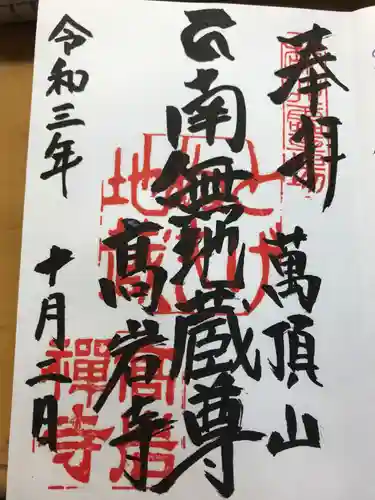 奉拝
萬頂山
南無地蔵尊
高岩寺
令和三年
十月三日
高岩
禅寺